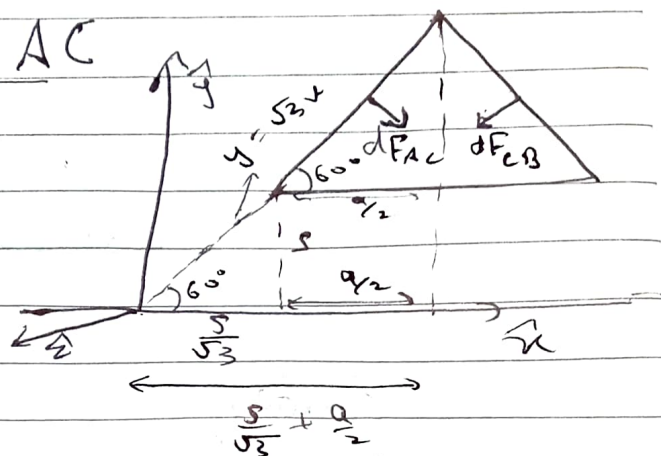 AC
ŷ
y = √3x
60°
dF_AC
dF_CB
a/2
s
60°
a/2
ẑ
s/√3
x̂
s/√3 + a/2